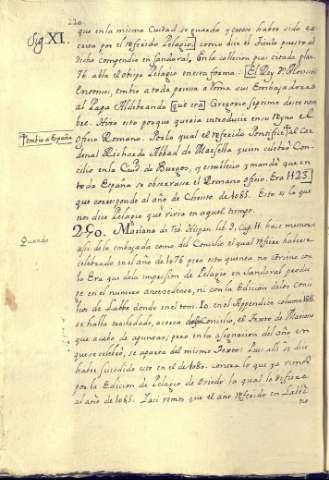 220.
Sig. XI.
que en la misma Ciudad se guarda y creese haber sido es-
crita por el referido Pelagio] como dice el Titulo puesto al
dicho compendio en Sandoval, En la colleccion pues citada pla.
76 abla el obispo Pelagio en esta forma: [El Rey Dn Alonso
Entonces, embio a toda priesa a Roma sus Embaxadores
al Papa Aldebrando [que era] Gregorio septimo deste nom-
bre. Hizo esto porque queria introducir en su reyno el
+ embio a España
Oficio Romano. Por lo qual el referido Pontifice + al Car-
denal Richardo Abbad de Marsella quien celebró Con-
cilio en la Ciud. de Burgos, y establecio y mandó que en
toda España se observasse el Romano oficio. Era 1123]
que corresponde al año de Christo de 1085. Esto es lo que
nos dice Pelagio que vivia en aquel tiempo.
Quando
250. Mariana de reb. Hispan. lib. 9, Cap. 11. hace mencion
assi de la embajada como del Concilio el qual refiere haberse
celebrado en el año de 1076 pero esta quenta no conviene con
la Era que de la impression de Pelagio en Sandoval produ-
xe en el numero antecedente, ni con la Edicion de los Conci-
lios de Labbe donde en el tom. 10. en el Appendice columna
se halla trasladado, acerca deste Concilio, el Texto de Mariana
que acabo de apuntar, pero en la assignacion del año en
que se celebró, se aparta del mismo Texto: Pues alli se dice
haber sucedido esto en el de 1080. contra lo que ya vimos
por la Edicion de Pelagio de Oviedo la qual lo refiere
al año de 1085. Facil vemos que el año referido en Labbe
no